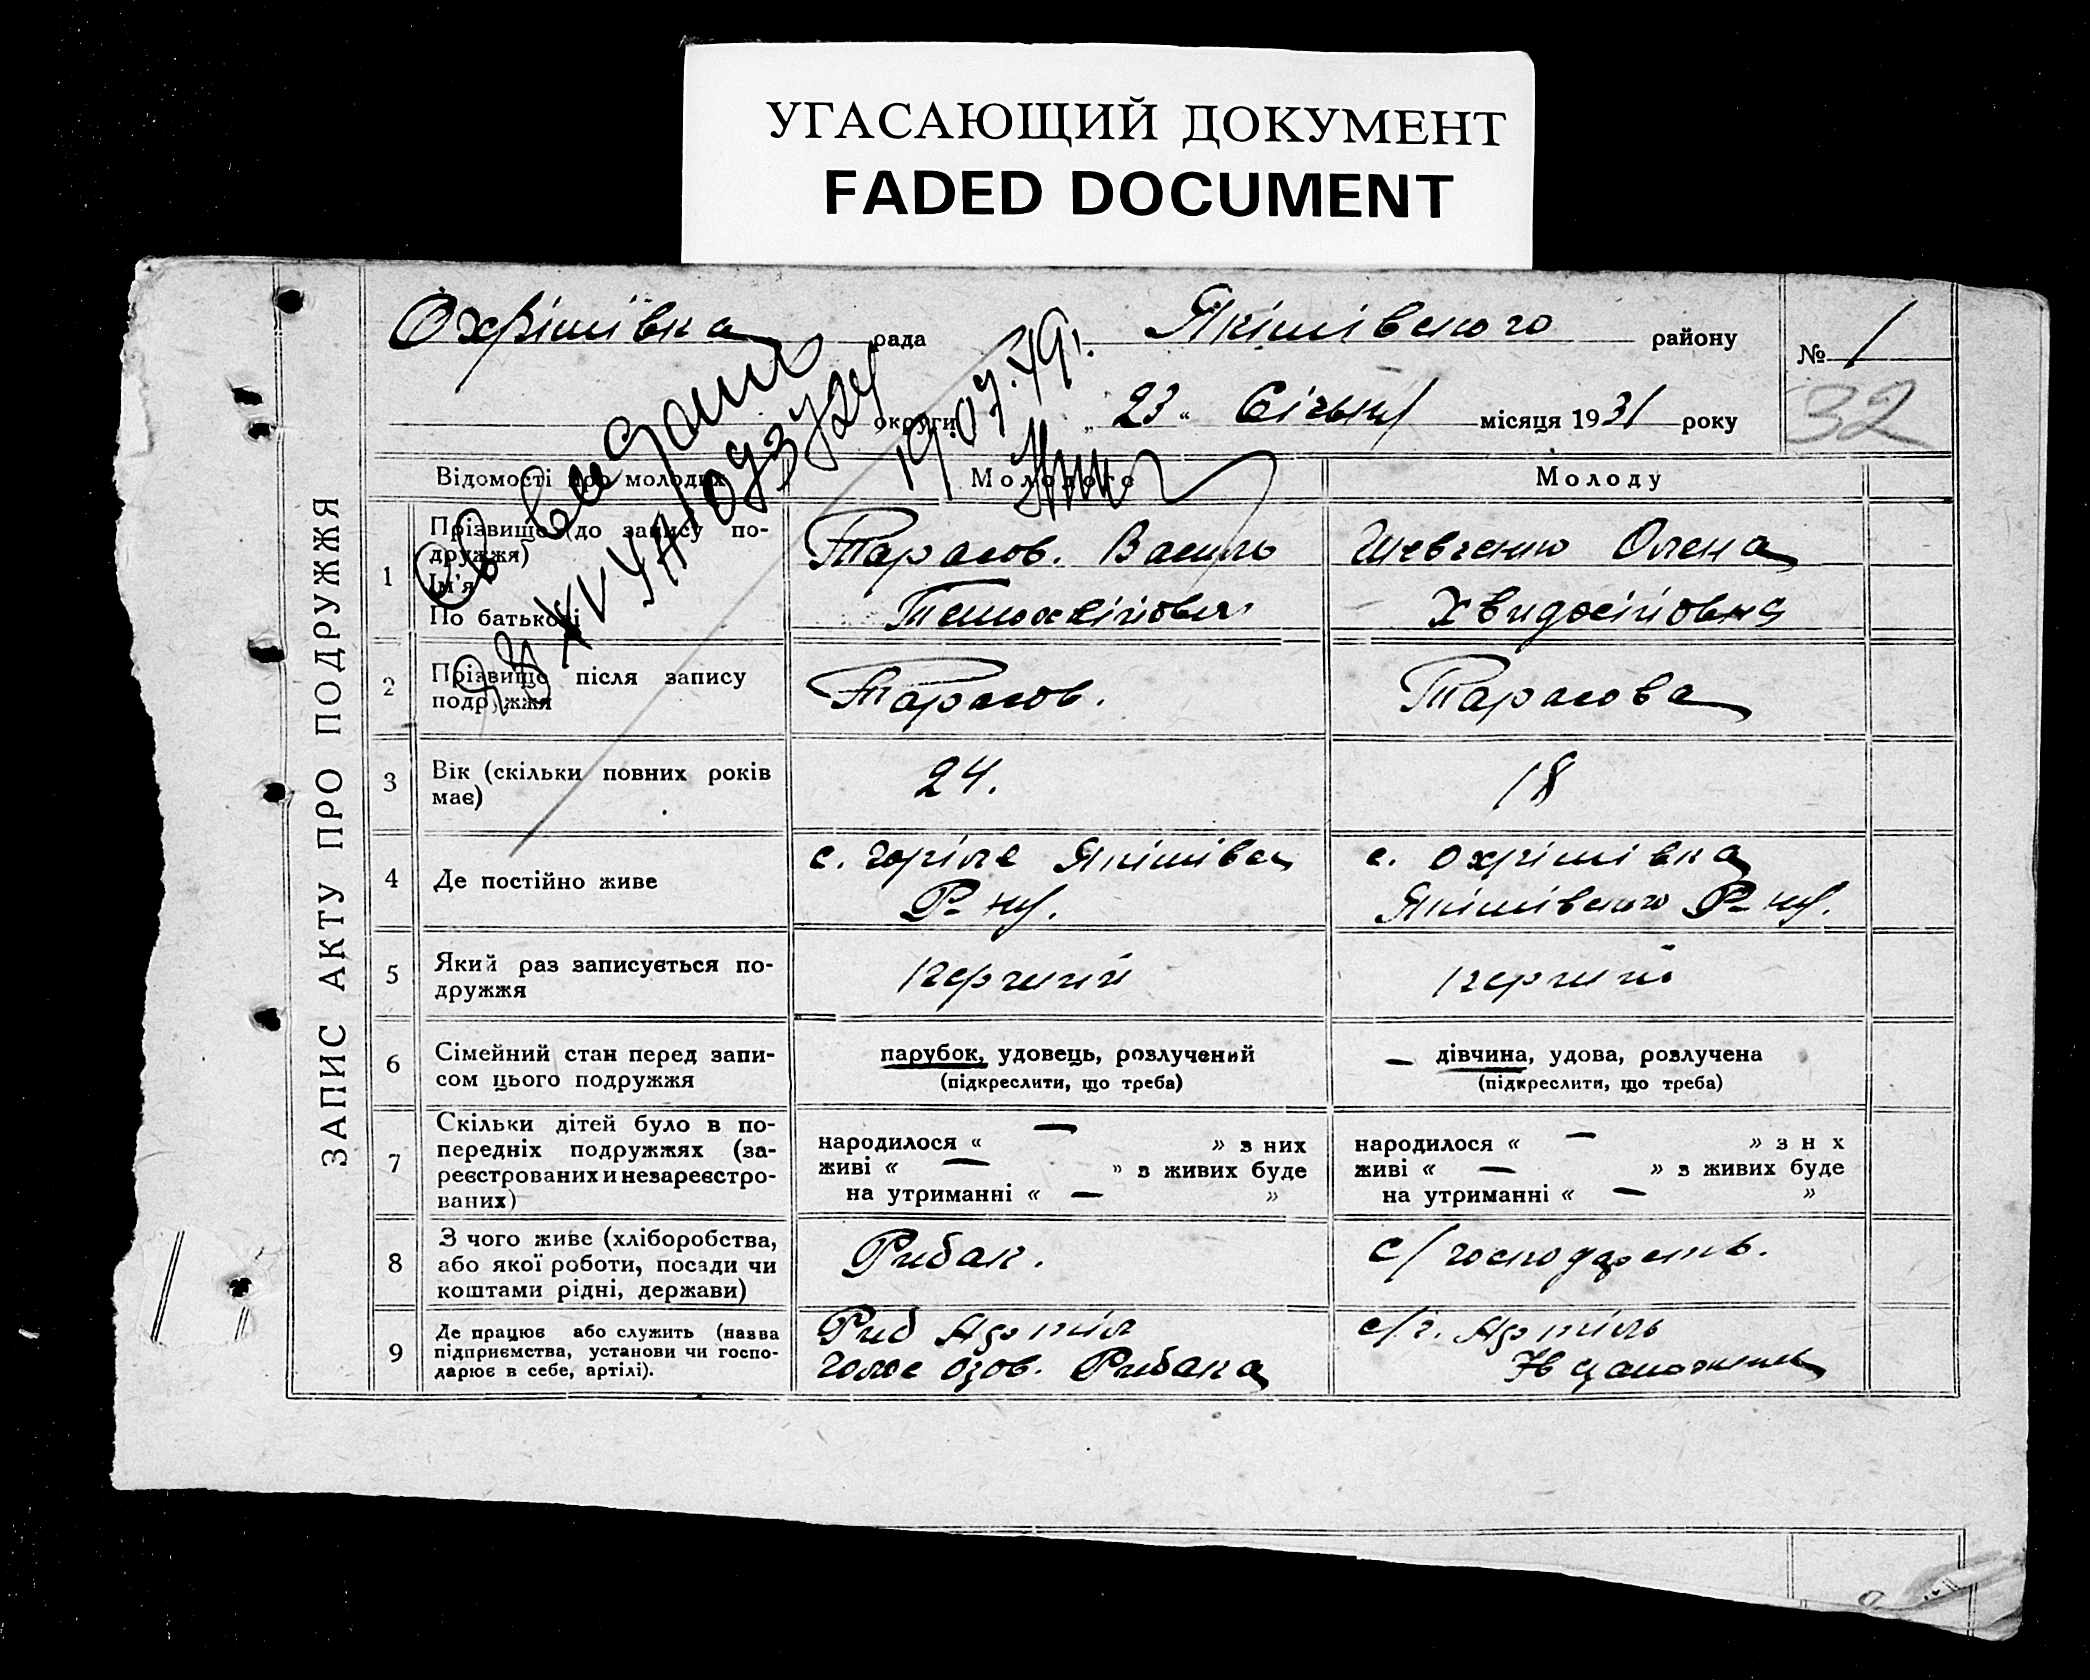 УГАСАЮЩИЙ ДОКУМЕНТ
FADED DOCUMENT
ЗАПИС АКТУ ПРО ПОДРУЖЖЯ
Охрімівка рада Якімівського району № 1
округи „ 23 “ Січня місяця 1931 року 32
19.07.49г.
Відомості про молодих Молодого Молоду
1 Прізвище (до запису подружжя) Тарасов. Василь Шевченко Олена
Ім'я
По батькові Хвидосійовна
2 Прізвище після запису Тарасов. Тарасова
подружжя
3 Вік (скільки повних років 24. 18
має)
4 Де постійно живе с. Горіле Якімівск с. Охрімівка
Р-ну. Якімівського Р-ну.
5 Який раз записується по- перший перший
дружжя
6 Сімейний стан перед запи- парубок, удовець, розлучений — дівчина, удова, розлучена
сом цього подружжя (підкреслити, що треба) (підкреслити, що треба)
7 Скільки дітей було в по-
передніх подружжях (за- народилося « — » з них народилося « — » з н х
реєстрованих и незареєстро- живі « — » з живих буде живі « — » з живих буде
ваних) на утриманні « — » на утриманні « — »
8 З чого живе (хліборобства, Рибак. с/господарств.
або якої роботи, посади чи
коштами рідні, держави)
9 Де працює або служить (назва Риб Артіл с/г. Артіль
підприємства, установи чи госпо- Голос озов. Рибака
дарює в себе, артілі).